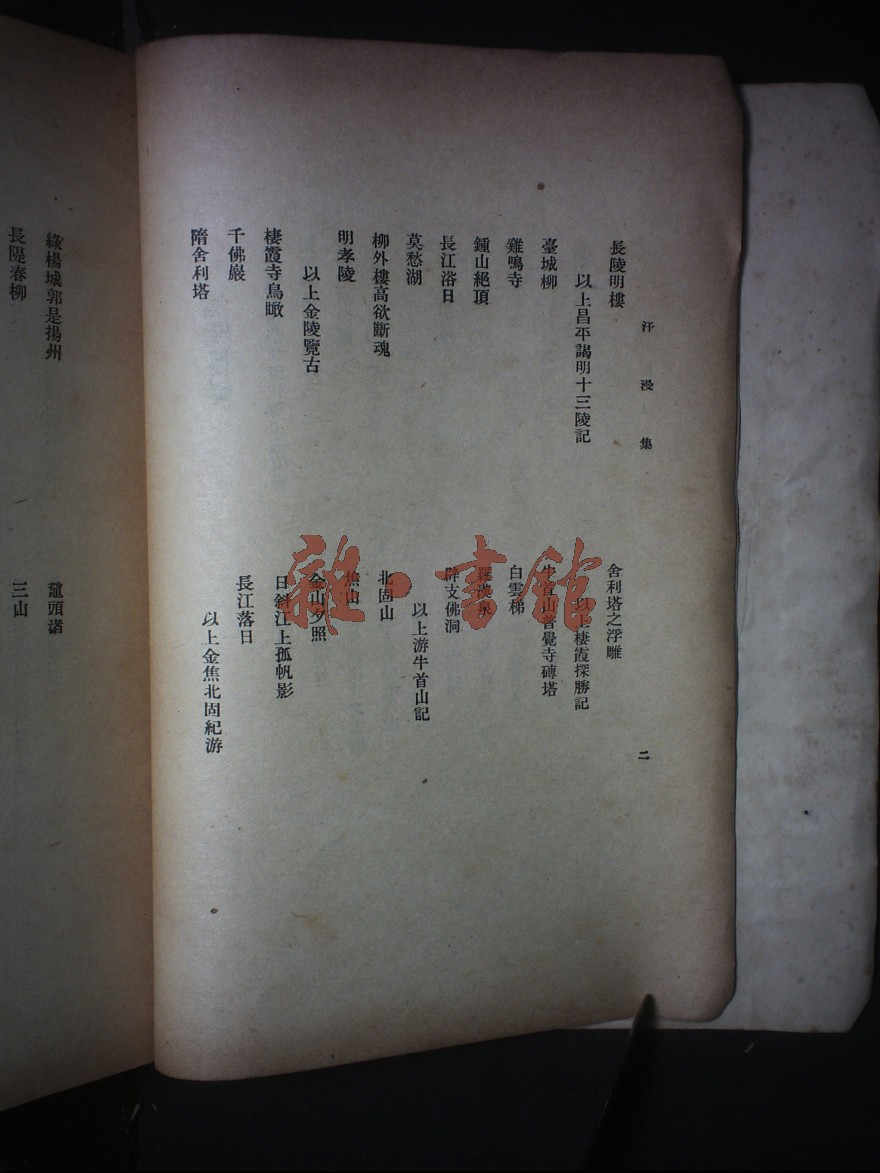 汗漫集
二
長陵明樓
以上昌平謁明十三陵記
臺城柳
雞鳴寺
鍾山絕頂
長江浴日
莫愁湖
柳外樓高欲斷魂
明孝陵
以上金陵覽古
棲霞寺鳥瞰
千佛巖
隋舍利塔
舍利塔之浮雕
以上棲霞探勝記
牛首山普覺寺磚塔
白雲梯
羅漢泉
辟支佛洞
以上游牛首山記
北固山
焦山
金山夕照
日斜江上孤帆影
長江落日
以上金焦北固紀游
綠楊城郭是揚州
長隄春柳
黿頭渚
三山
雜·書館